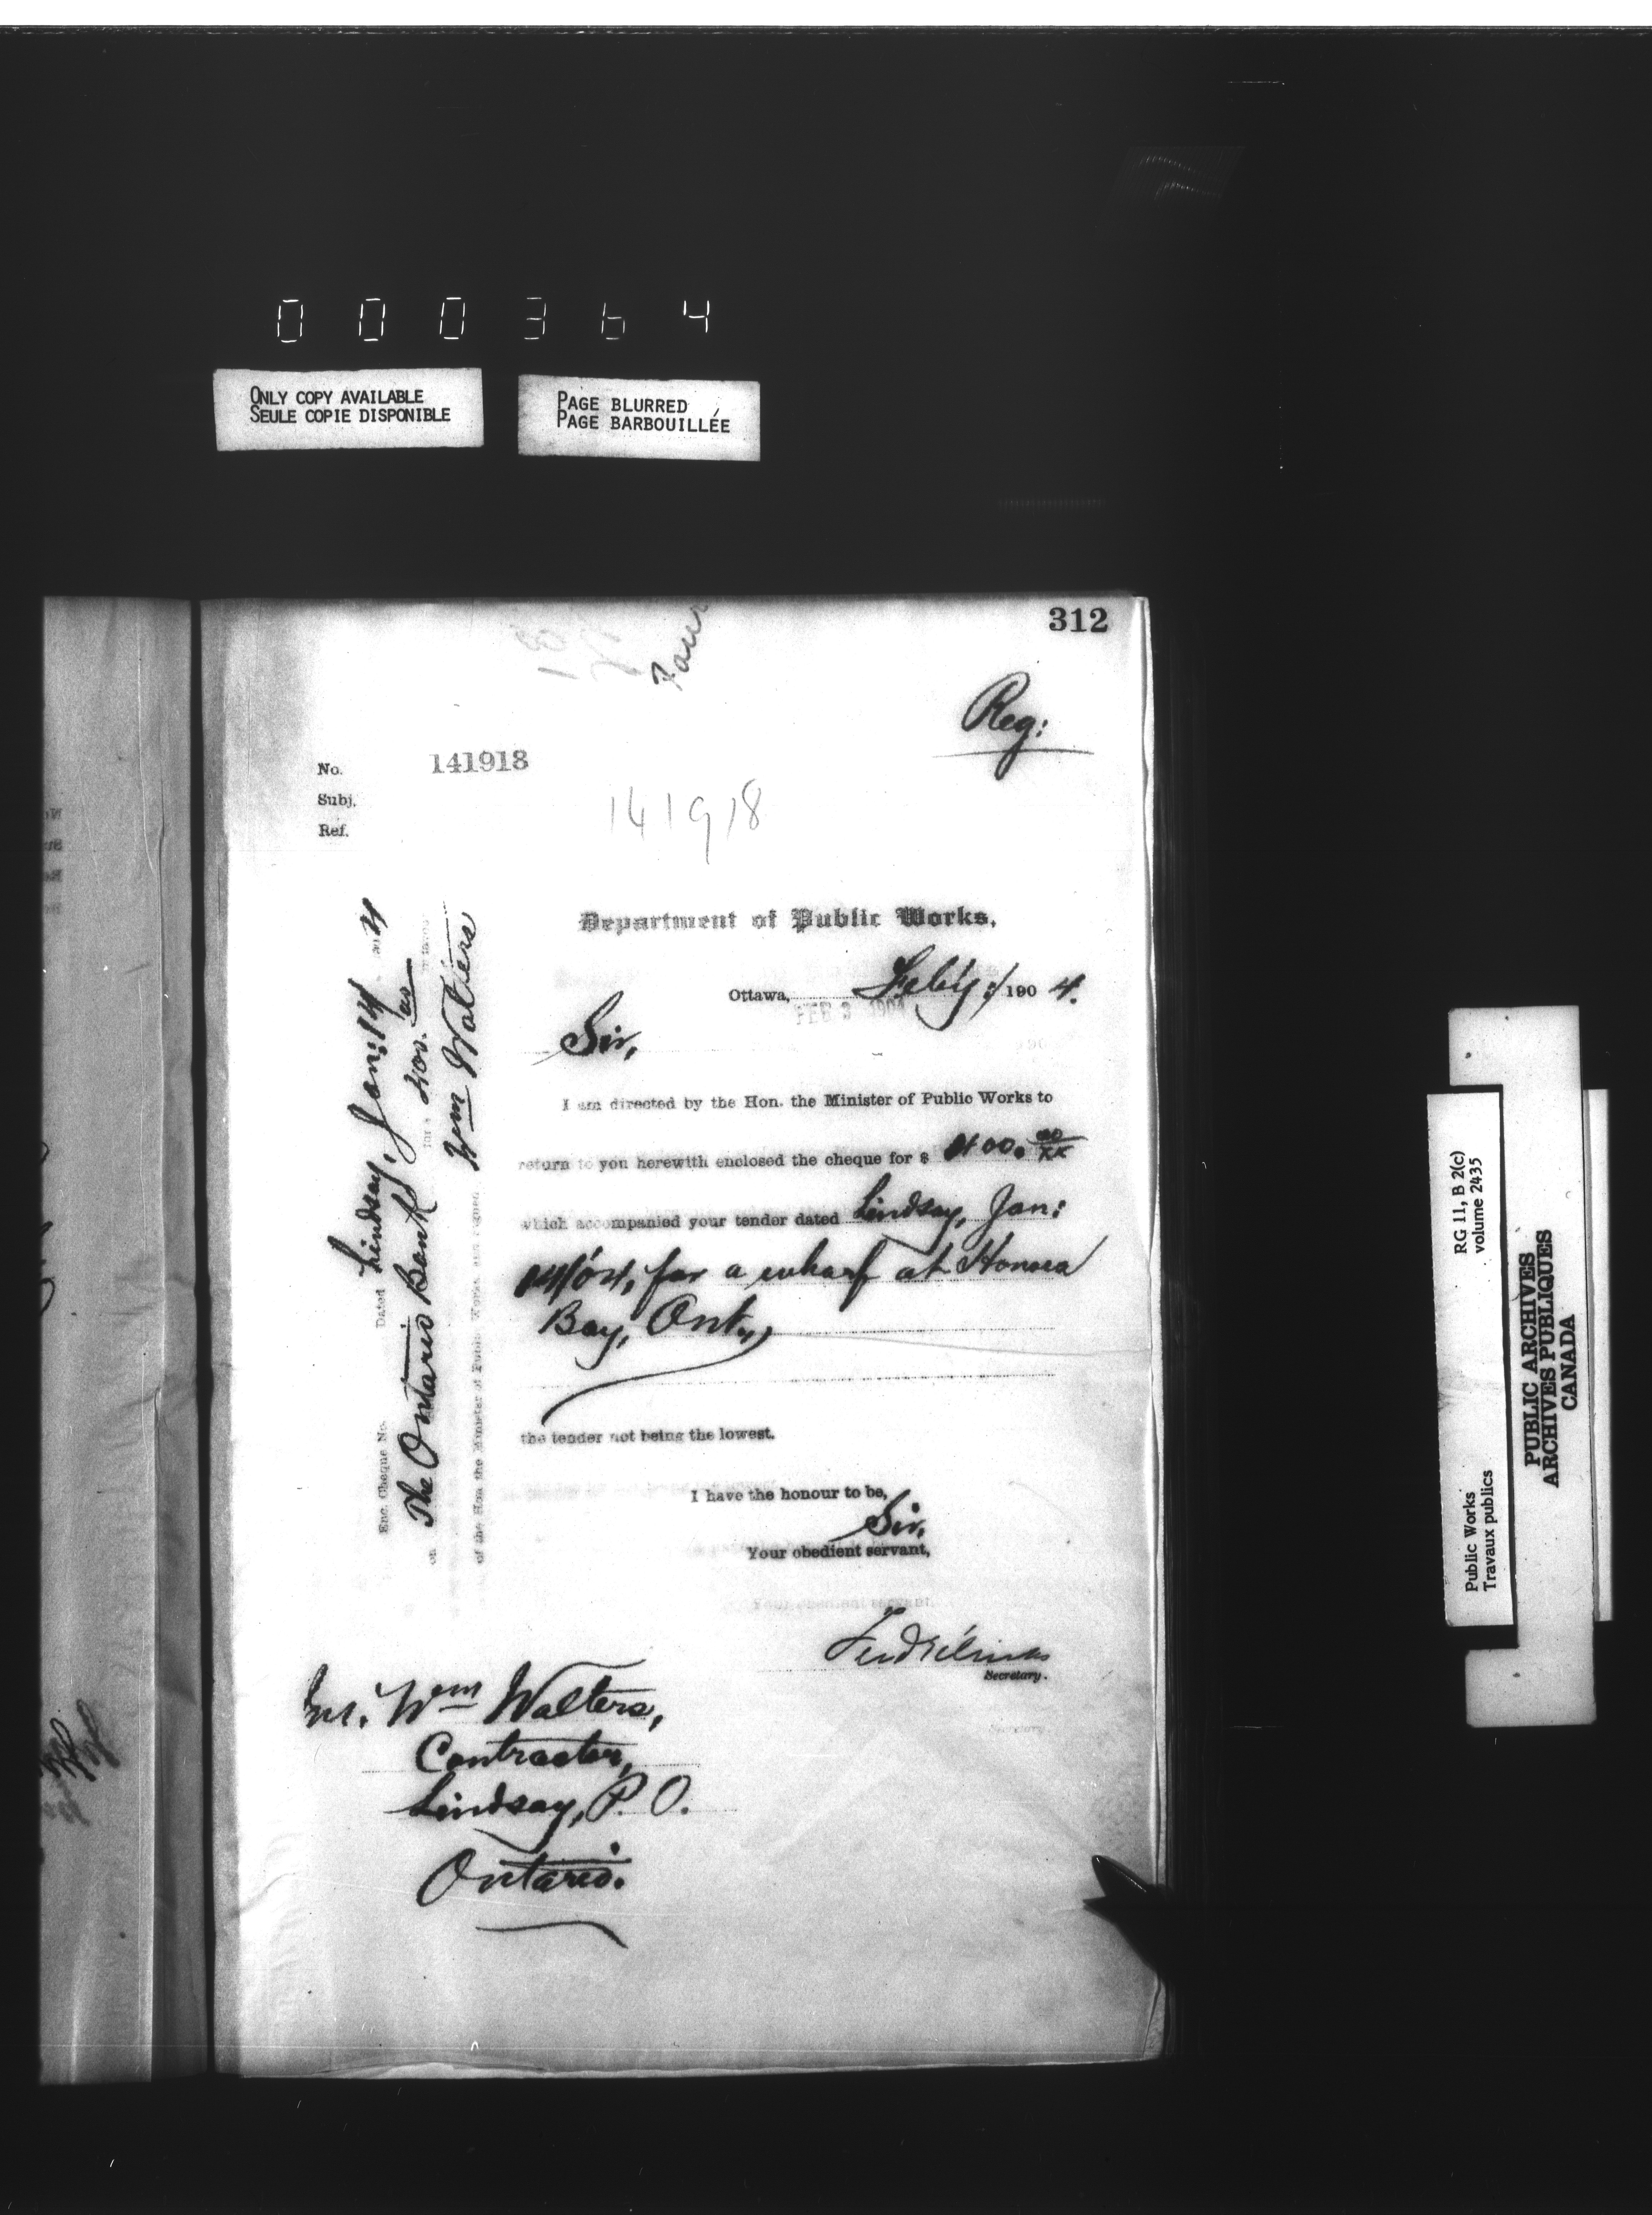 000364
ONLY COPY AVAILABLE
SEULE COPIE DISPONIBLE
PAGE BLURRED
PAGE BARBOUILLÉE
312
Reg:
No. 141918
Subj.
Ref.
141918
Department of Public Works.
Ottawa, Feb'y: / 1904.
FEB 3 1904
Sir,
I am directed by the Hon. the Minister of Public Works to
return to you herewith enclosed the cheque for $ 400. 00/xx
which accompanied your tender dated Lindsay, Jan:
14/04, for a wharf at Honora
Bay, Ont.,
the tender not being the lowest.
I have the honour to be,
Sir,
Your obedient servant,
Secretary.
Mr. Wm Walters,
Contractor,
Lindsay, P. O.
Ontario.
Enc. Cheque No. Dated Lindsay, Jan: 14 1904
on The Ontario Bank for $ 400. 00 in favour
of the Hon the Minister of Public Works and signed Wm Walters
Public Works
Travaux publics
RG 11, B 2(c)
volume 2435
PUBLIC ARCHIVES
ARCHIVES PUBLIQUES
CANADA